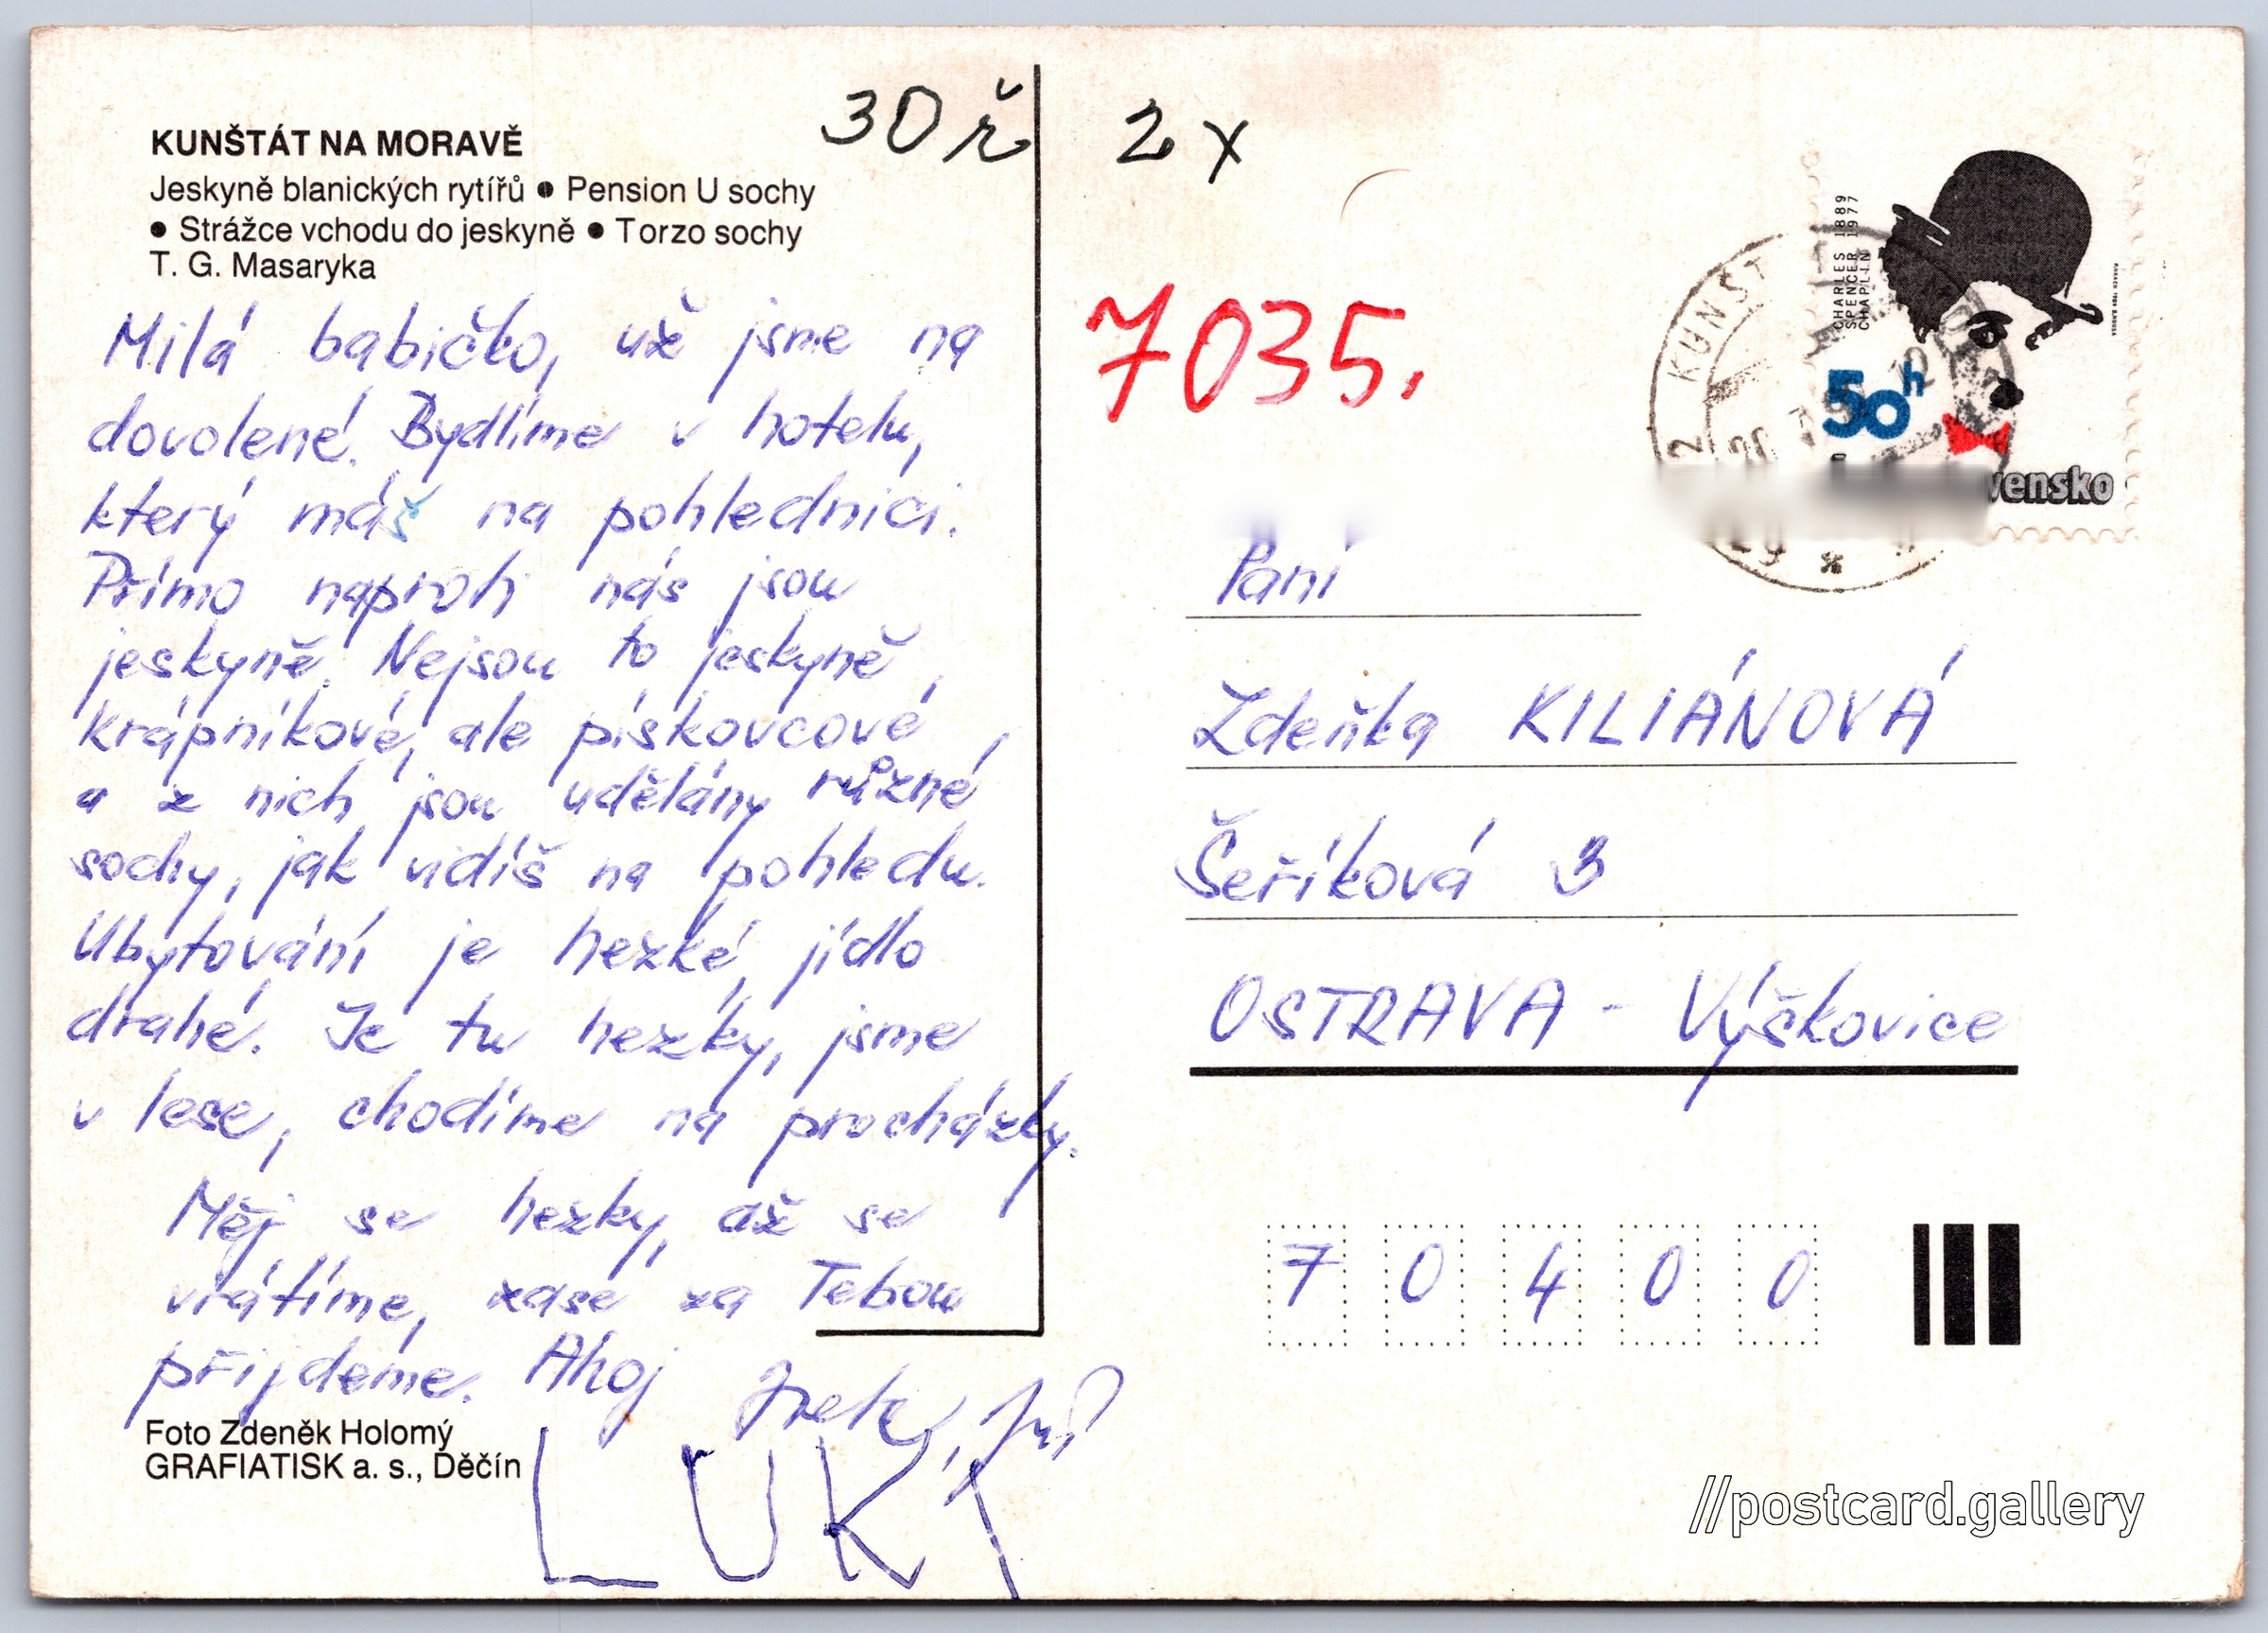 30 ř
2 x
KUNŠTÁT NA MORAVĚ
Jeskyně blanických rytířů ● Pension U sochy
● Strážce vchodu do jeskyně ● Torzo sochy
T. G. Masaryka
Milá babičko, už jsme na
dovolené. Bydlíme v hotelu,
který máš na pohlednici.
Přímo naproti nás jsou
jeskyně. Nejsou to jeskyně
krápníkové, ale pískovcové,
a z nich jsou udělány různé
sochy, jak vidíš na pohledu.
Ubytování je hezké, jídlo
drahé. Je tu hezky, jsme
v lese, chodíme na procházky.
Měj se hezky, až se
vrátíme, zase za Tebou
přijdeme. Ahoj
LUKA
Foto Zdeněk Holomý
GRAFIATISK a. s., Děčín
7035.
CHARLES 1889
SPENCER 1977
CHAPLIN
50h
vensko
KUNŠT
Paní
Zdeňka KILIÁNOVÁ
Šeříková 3
OSTRAVA - Výškovice
7 0 4 0 0
//postcard.gallery